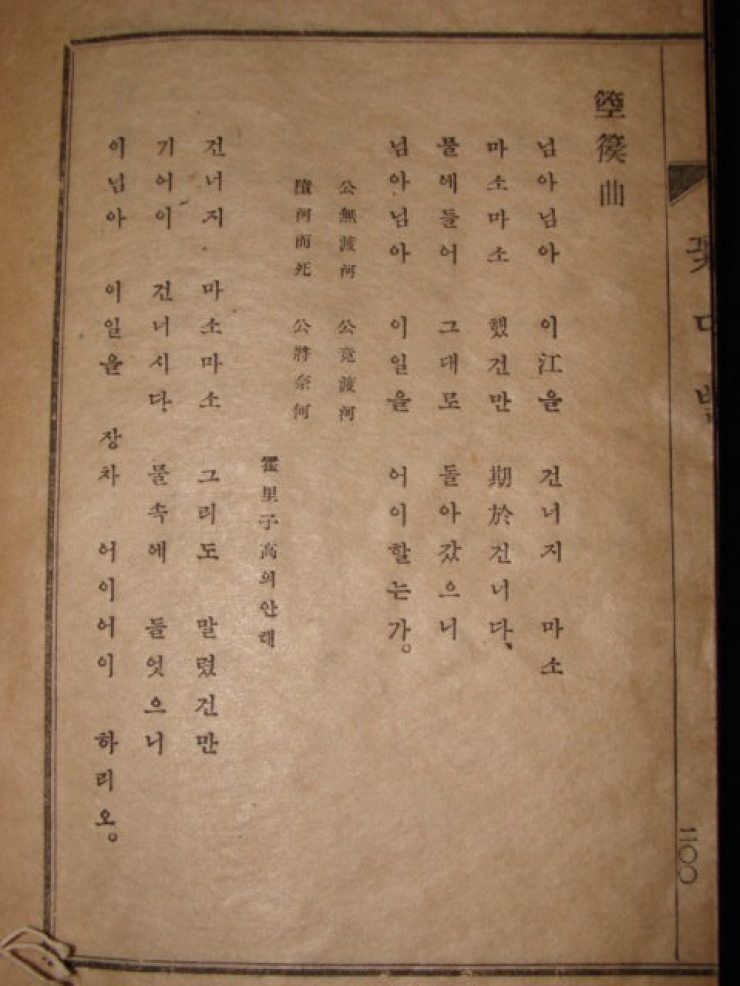 꽃다발
二〇〇
箜篌曲
님아님아 이江을 건너지 마소
마소마소 했건만 期於건너다、
물에들어 그대로 돌아갔으니
님아님아 이일을 어이할는가。
公無渡河 公竟渡河
墮河而死 公將奈何
霍里子高의안해
건너지 마소마소 그리도 말렸건만
기어이 건너시다 물속에 들엇으니
이님아 이일을 장차 어이어이 하리오。